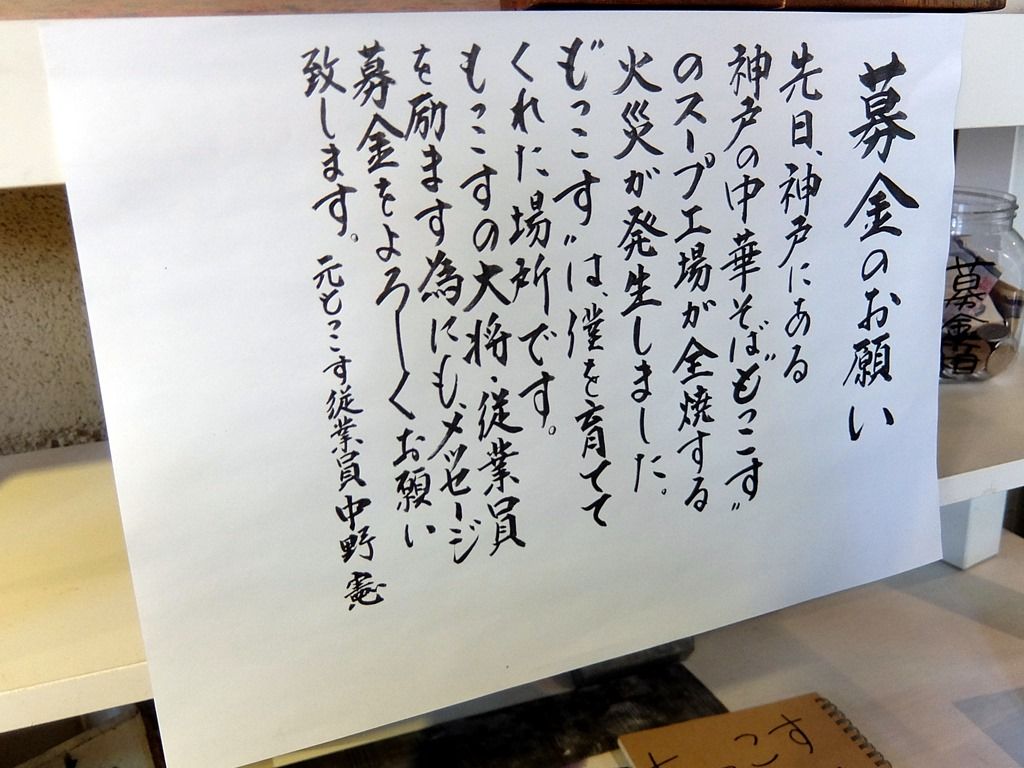 募金のお願い
先日、神戸にある
神戸の中華そば"もっこす"
のスープ工場が全焼する
火災が発生しました。
"もっこす"は、僕を育てて
くれた場所です。
もっこすの大将・従業員
を励ます為にも、メッセージ
募金をよろしくお願い
致します。 元もっこす従業員 中野 憲
募金箱
もっこす